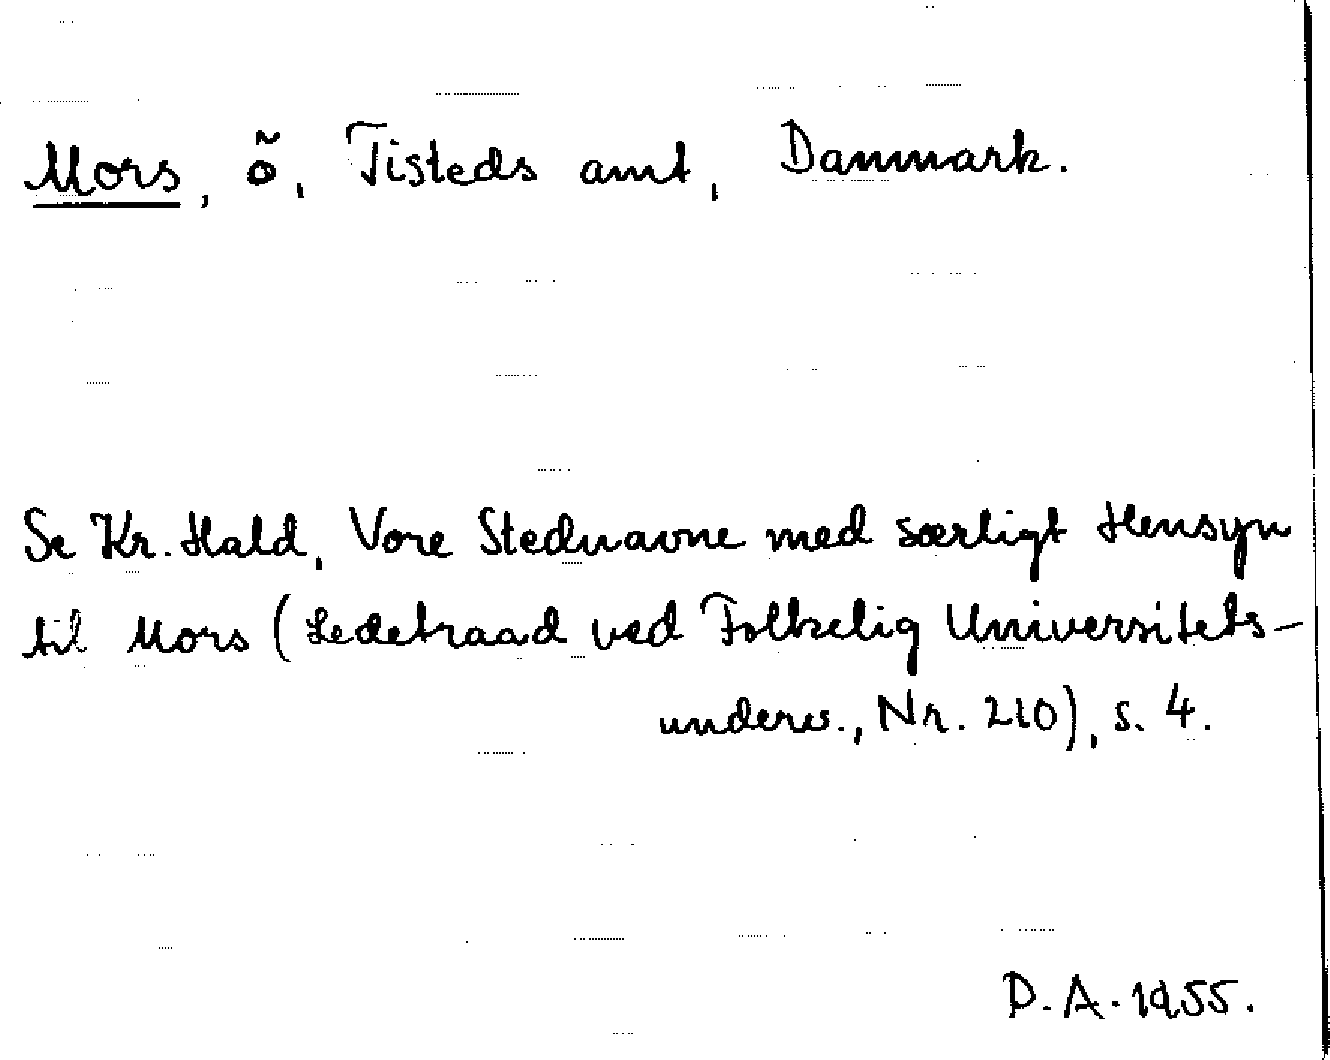 Mors, ö, Tisteds amt, Danmark.
Se Kr. Hald, Vore Stednavne med særligt Hensyn
til Mors (Ledetraad ved Folkelig Universitets-
underv., Nr. 210), s. 4.
D.A. 1955.